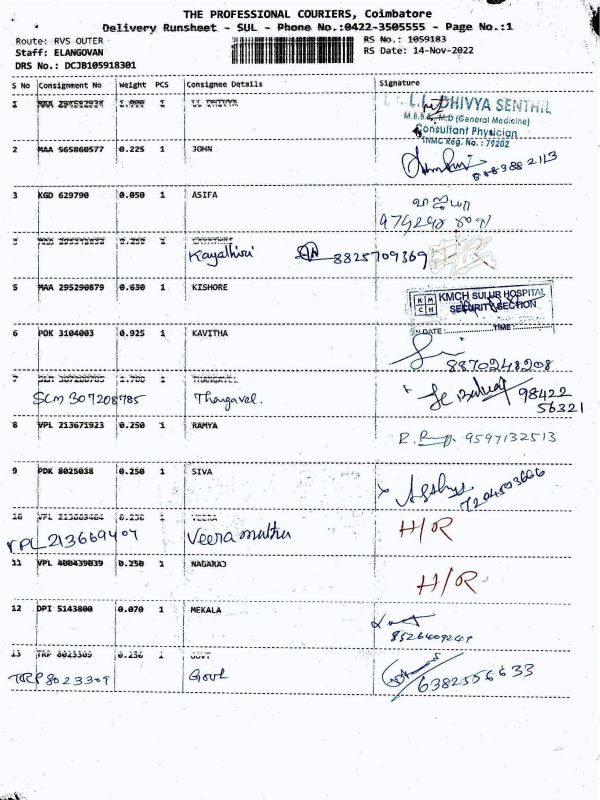 THE PROFESSIONAL COURIERS, Coimbatore
Delivery Runsheet - SUL - Phone No.:0422-3505555 - Page No.:1
Route: RVS OUTER RS No.: 1059183
Staff: ELANGOVAN RS Date: 14-Nov-2022
DRS No.: DCJB105918301
S No Consignment No Weight PCS Consignee Details Signature
1 1
DHIVYA SENTHIL
M.D (General Medicine)
Consultant Physician
TNMC Reg. No.: 79202
2 MAA 565860577 0.225 1 JOHN
3 KGD 629790 0.050 1 ASIFA
Kayathiri 8825709369
5 MAA 295290879 0.630 1 KISHORE
KMCH KMCH SULUR HOSPITAL
SECURITY SECTION
DATE: TIME:
6 PDK 3104003 0.925 1 KAVITHA
8870248208
7 1 THANGAVEL
SLM 307208785 Thangavel. 98422
56321
8 VPL 213671923 0.250 1 RAMYA
9597132513
9 PDK 8025038 0.250 1 SIVA
7204503666
10 1 VEERA H/R
VPL 213669407 Veeramuthu
11 VPL 400439039 0.250 1 NAGARAJ
H/R
12 DPI 5143800 0.070 1 MEKALA
13 TRP 8023309 0.250 1 GOVT
TRP 8023309 Govt 6382556633